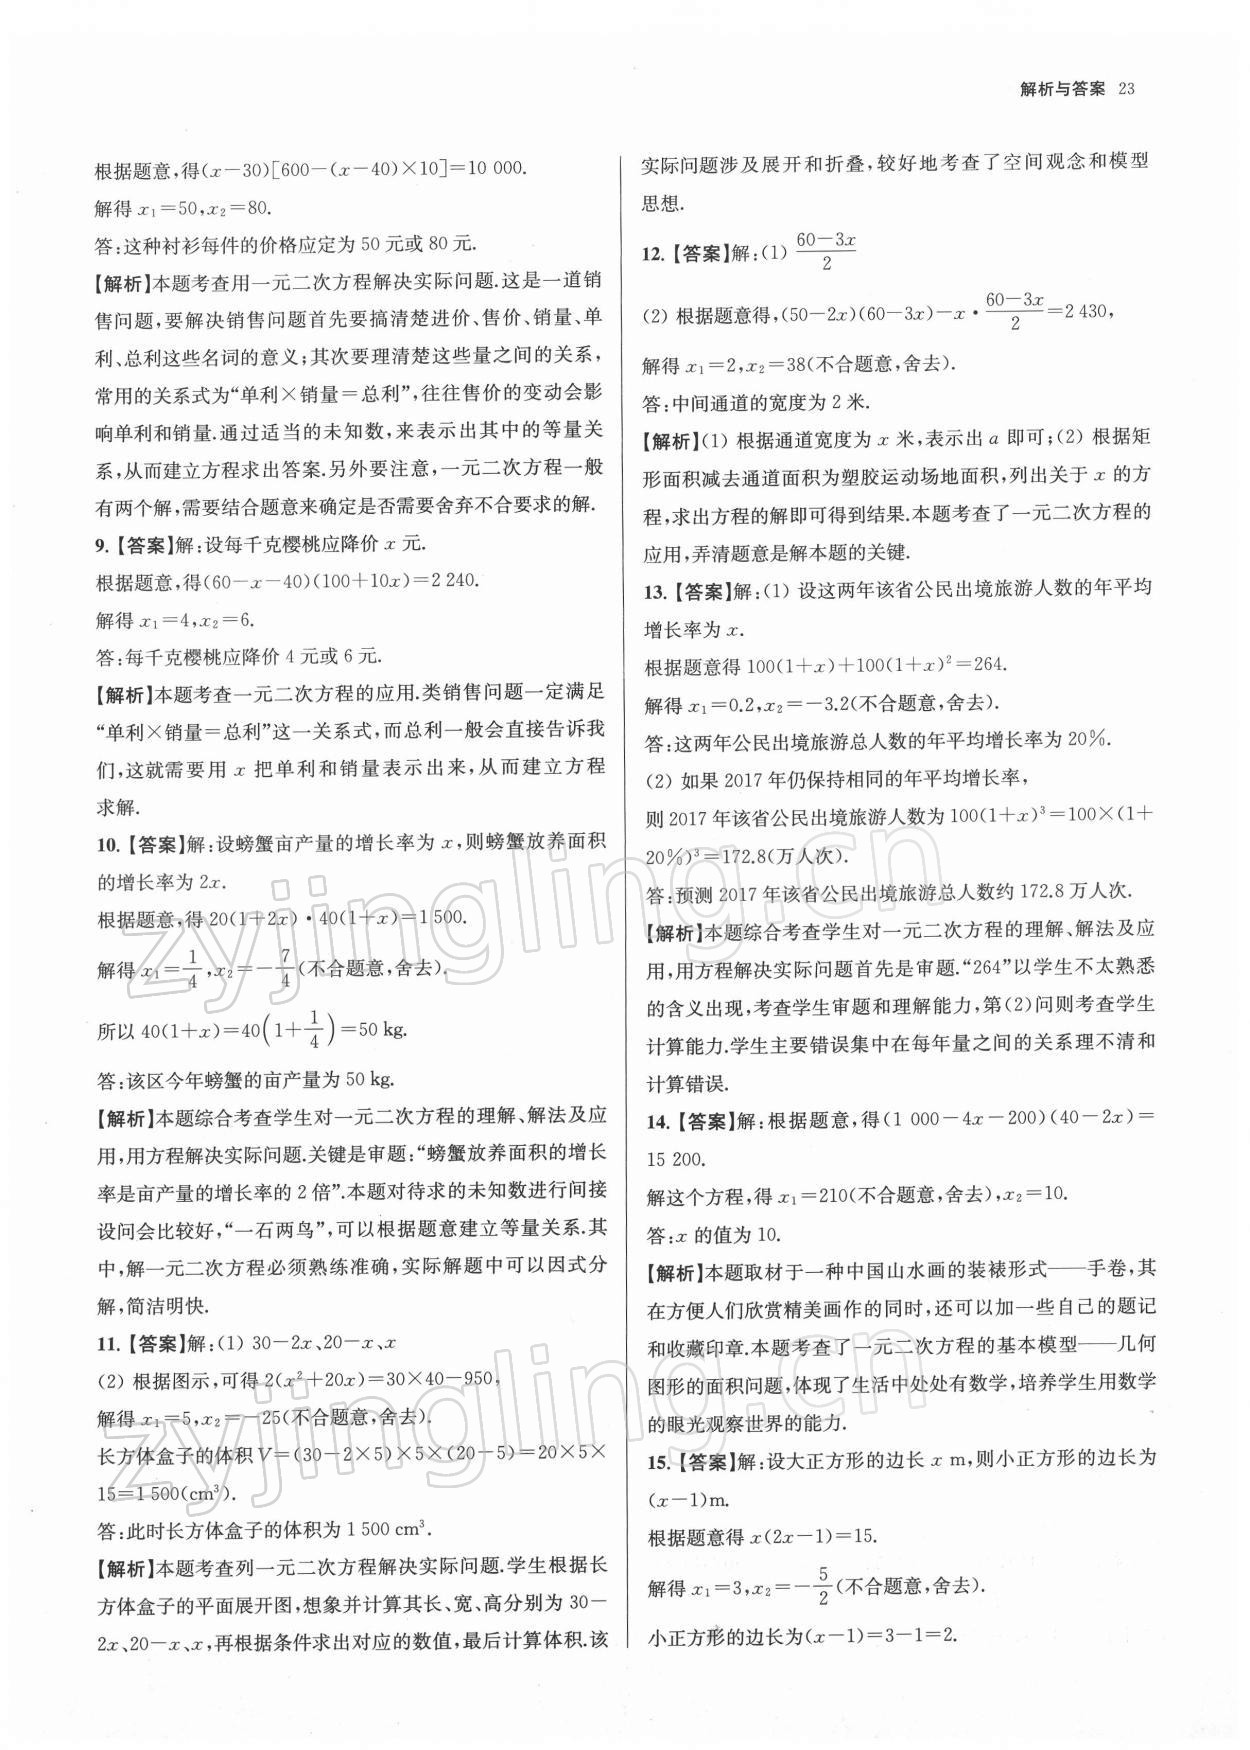 解析与答案 23
根据题意,得(x-30)[600-(x-40)×10]=10 000.
解得 x₁=50,x₂=80.
答:这种衬衫每件的价格应定为 50 元或 80 元.
【解析】本题考查用一元二次方程解决实际问题.这是一道销
售问题,要解决销售问题首先要搞清楚进价、售价、销量、单
利、总利这些名词的意义;其次要理清楚这些量之间的关系,
常用的关系式为“单利×销量=总利”,往往售价的变动会影
响单利和销量.通过适当的未知数,来表示出其中的等量关
系,从而建立方程求出答案.另外要注意,一元二次方程一般
有两个解,需要结合题意来确定是否需要舍弃不合要求的解.
9.【答案】解:设每千克樱桃应降价 x 元.
根据题意,得(60-x-40)(100+10x)=2 240.
解得 x₁=4,x₂=6.
答:每千克樱桃应降价 4 元或 6 元.
【解析】本题考查一元二次方程的应用.类销售问题一定满足
“单利×销量=总利”这一关系式,而总利一般会直接告诉我
们,这就需要用 x 把单利和销量表示出来,从而建立方程
求解.
10.【答案】解:设螃蟹亩产量的增长率为 x,则螃蟹放养面积
的增长率为 2x.
根据题意,得 20(1+2x)·40(1+x)=1 500.
解得 x₁=1/4,x₂=-7/4(不合题意,舍去).
所以 40(1+x)=40(1+1/4)=50 kg.
答:该区今年螃蟹的亩产量为 50 kg.
【解析】本题综合考查学生对一元二次方程的理解、解法及应
用,用方程解决实际问题.关键是审题:“螃蟹放养面积的增长
率是亩产量的增长率的 2 倍”.本题对待求的未知数进行间接
设问会比较好,“一石两鸟”,可以根据题意建立等量关系.其
中,解一元二次方程必须熟练准确,实际解题中可以因式分
解,简洁明快.
11.【答案】解:(1) 30-2x、20-x、x
(2) 根据图示,可得 2(x²+20x)=30×40-950,
解得 x₁=5,x₂=-25(不合题意,舍去).
长方体盒子的体积 V=(30-2×5)×5×(20-5)=20×5×
15=1 500(cm³).
答:此时长方体盒子的体积为 1 500 cm³.
【解析】本题考查列一元二次方程解决实际问题.学生根据长
方体盒子的平面展开图,想象并计算其长、宽、高分别为 30-
2x、20-x、x,再根据条件求出对应的数值,最后计算体积.该
实际问题涉及展开和折叠,较好地考查了空间观念和模型
思想.
12.【答案】解:(1) (60-3x)/2
(2) 根据题意得,(50-2x)(60-3x)-x·(60-3x)/2=2 430,
解得 x₁=2,x₂=38(不合题意,舍去).
答:中间通道的宽度为 2 米.
【解析】(1) 根据通道宽度为 x 米,表示出 a 即可;(2) 根据矩
形面积减去通道面积为塑胶运动场地面积,列出关于 x 的方
程,求出方程的解即可得到结果.本题考查了一元二次方程的
应用,弄清题意是解本题的关键.
13.【答案】解:(1) 设这两年该省公民出境旅游人数的年平均
增长率为 x.
根据题意得 100(1+x)+100(1+x)²=264.
解得 x₁=0.2,x₂=-3.2(不合题意,舍去).
答:这两年公民出境旅游总人数的年平均增长率为 20%.
(2) 如果 2017 年仍保持相同的年平均增长率,
则 2017 年该省公民出境旅游人数为 100(1+x)³=100×(1+
20%)³=172.8(万人次).
答:预测 2017 年该省公民出境旅游总人数约 172.8 万人次.
【解析】本题综合考查学生对一元二次方程的理解、解法及应
用,用方程解决实际问题首先是审题.“264”以学生不太熟悉
的含义出现,考查学生审题和理解能力,第(2)问则考查学生
计算能力.学生主要错误集中在每年量之间的关系理不清和
计算错误.
14.【答案】解:根据题意,得(1 000-4x-200)(40-2x)=
15 200.
解这个方程,得 x₁=210(不合题意,舍去),x₂=10.
答:x 的值为 10.
【解析】本题取材于一种中国山水画的装裱形式——手卷,其
在方便人们欣赏精美画作的同时,还可以加一些自己的题记
和收藏印章.本题考查了一元二次方程的基本模型——几何
图形的面积问题,体现了生活中处处有数学,培养学生用数学
的眼光观察世界的能力.
15.【答案】解:设大正方形的边长 x m,则小正方形的边长为
(x-1)m.
根据题意得 x(2x-1)=15.
解得 x₁=3,x₂=-5/2(不合题意,舍去).
小正方形的边长为(x-1)=3-1=2.
zyjingling.cn
zyjingling.cn